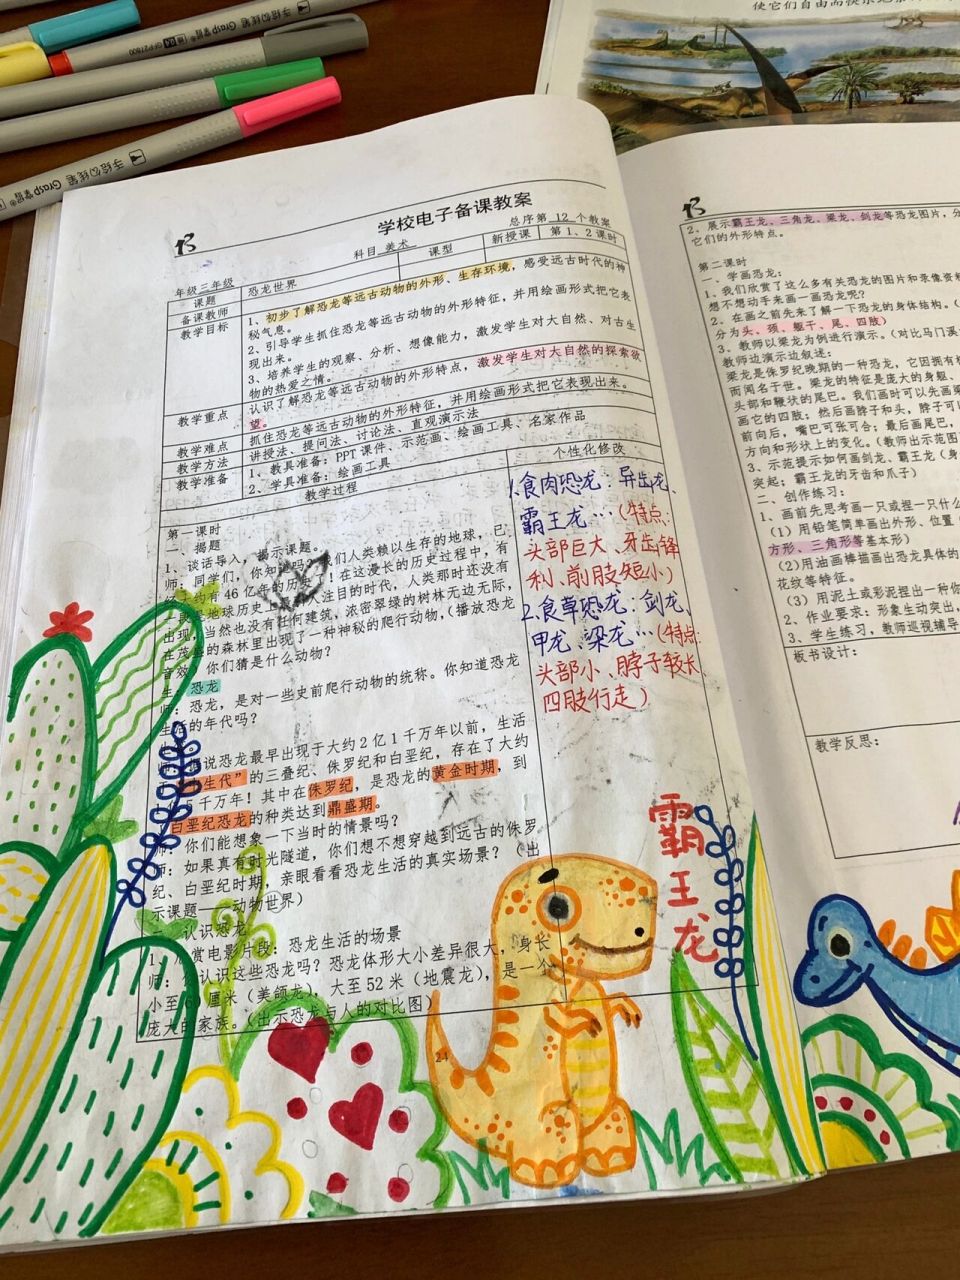 使它们自由而快乐地
手绘勾线笔 Grasp掌握
手绘勾线笔 Grasp掌握
学校电子备课教案
总序第 12 个教案
年级 三年级
科目 美术
课型
新授课
第 1、2 课时
课题
恐龙世界
备课教师
教学目标
1、初步了解恐龙等远古动物的外形、生存环境，感受远古时代的神
秘气息。
2、引导学生抓住恐龙等远古动物的外形特征，并用绘画形式把它表
现出来。
3、培养学生的观察、分析、想像能力，激发学生对大自然、对古生
物的热爱之情。
教学重点
认识了解恐龙等远古动物的外形特点，激发学生对大自然的探索欲
望。
教学难点
抓住恐龙等远古动物的外形特征，并用绘画形式把它表现出来。
教学方法
讲授法、提问法、讨论法、直观演示法
教学准备
1、教具准备：PPT 课件、示范画、绘画工具、名家作品
2、学具准备：绘画工具
教学过程
个性化修改
第一课时
一、揭题
1、谈话导入，揭示课题。
师：同学们，你知道吗？我们人类赖以生存的地球，已
约有 46 亿年的历史！在这漫长的历史过程中，有
地球历史上 注目的时代，人类那时还没有
出现，当然也没有任何建筑，浓密翠绿的树林无边无际，
在茂盛的森林里出现了一种神秘的爬行动物，（播放恐龙
音效）你们猜是什么动物？
生：恐龙
师：恐龙，是对一些史前爬行动物的统称。你知道恐龙
生活的年代吗？
说恐龙最早出现于大约 2 亿 1 千万年以前，生活
生代”的三叠纪、侏罗纪和白垩纪，存在了大约
5 千万年！其中在侏罗纪，是恐龙的黄金时期，到
白垩纪恐龙的种类达到鼎盛期。
师：你们能想象一下当时的情景吗？
师：如果真有时光隧道，你们想不想穿越到远古的侏罗
纪、白垩纪时期，亲眼看看恐龙生活的真实场景？（出
示课题——动物世界）
二、认识恐龙
1、欣赏电影片段：恐龙生活的场景
师：认识这些恐龙吗？恐龙体形大小差异很大，身长
小至 厘米（美颌龙），大至 52 米（地震龙），是一个
庞大的家族。（出示恐龙与人的对比图）
21
1.食肉恐龙：异齿龙、
霸王龙…（特点：
头部巨大、牙齿锋
利、前肢短小）
2.食草恐龙：剑龙、
甲龙、梁龙…（特点：
头部小、脖子较长、
四肢行走）
霸王龙
2、展示霸王龙、三角龙、梁龙、剑龙等恐龙图片，分
它们的外形特点。
第二课时
一、学画恐龙：
1、我们欣赏了这么多有关恐龙的图片和录像资料
想不想动手来画一画恐龙呢？
2、在画之前先来了解一下恐龙的身体结构。（
分为头、颈、躯干、尾、四肢）
3、教师以梁龙为例进行演示。（对比马门溪
教师边演示边叙述：
梁龙是侏罗纪晚期的一种恐龙，它因拥有
而闻名于世。梁龙的特征是庞大的身躯、
头部和鞭状的尾巴。我们画时可以先画
画它的四肢；然后画脖子和头，脖子可
前向后，嘴巴可张可合；最后画尾巴，
方向和形状上的变化。（教师出示范图
3、示范提示如何画剑龙、霸王龙（身
突起；霸王龙的牙齿和爪子）
二、创作练习：
1、画前先思考画一只或捏一只什么
（1）用铅笔简单画出外形、位置
方形、三角形等基本形）
（2）用油画棒描画出恐龙具体的
花纹等特征。
（3）用泥土或彩泥捏出一种你
2、作业要求：形象生动突出，
3、学生练习，教师巡视辅导
板书设计：
教学反思：